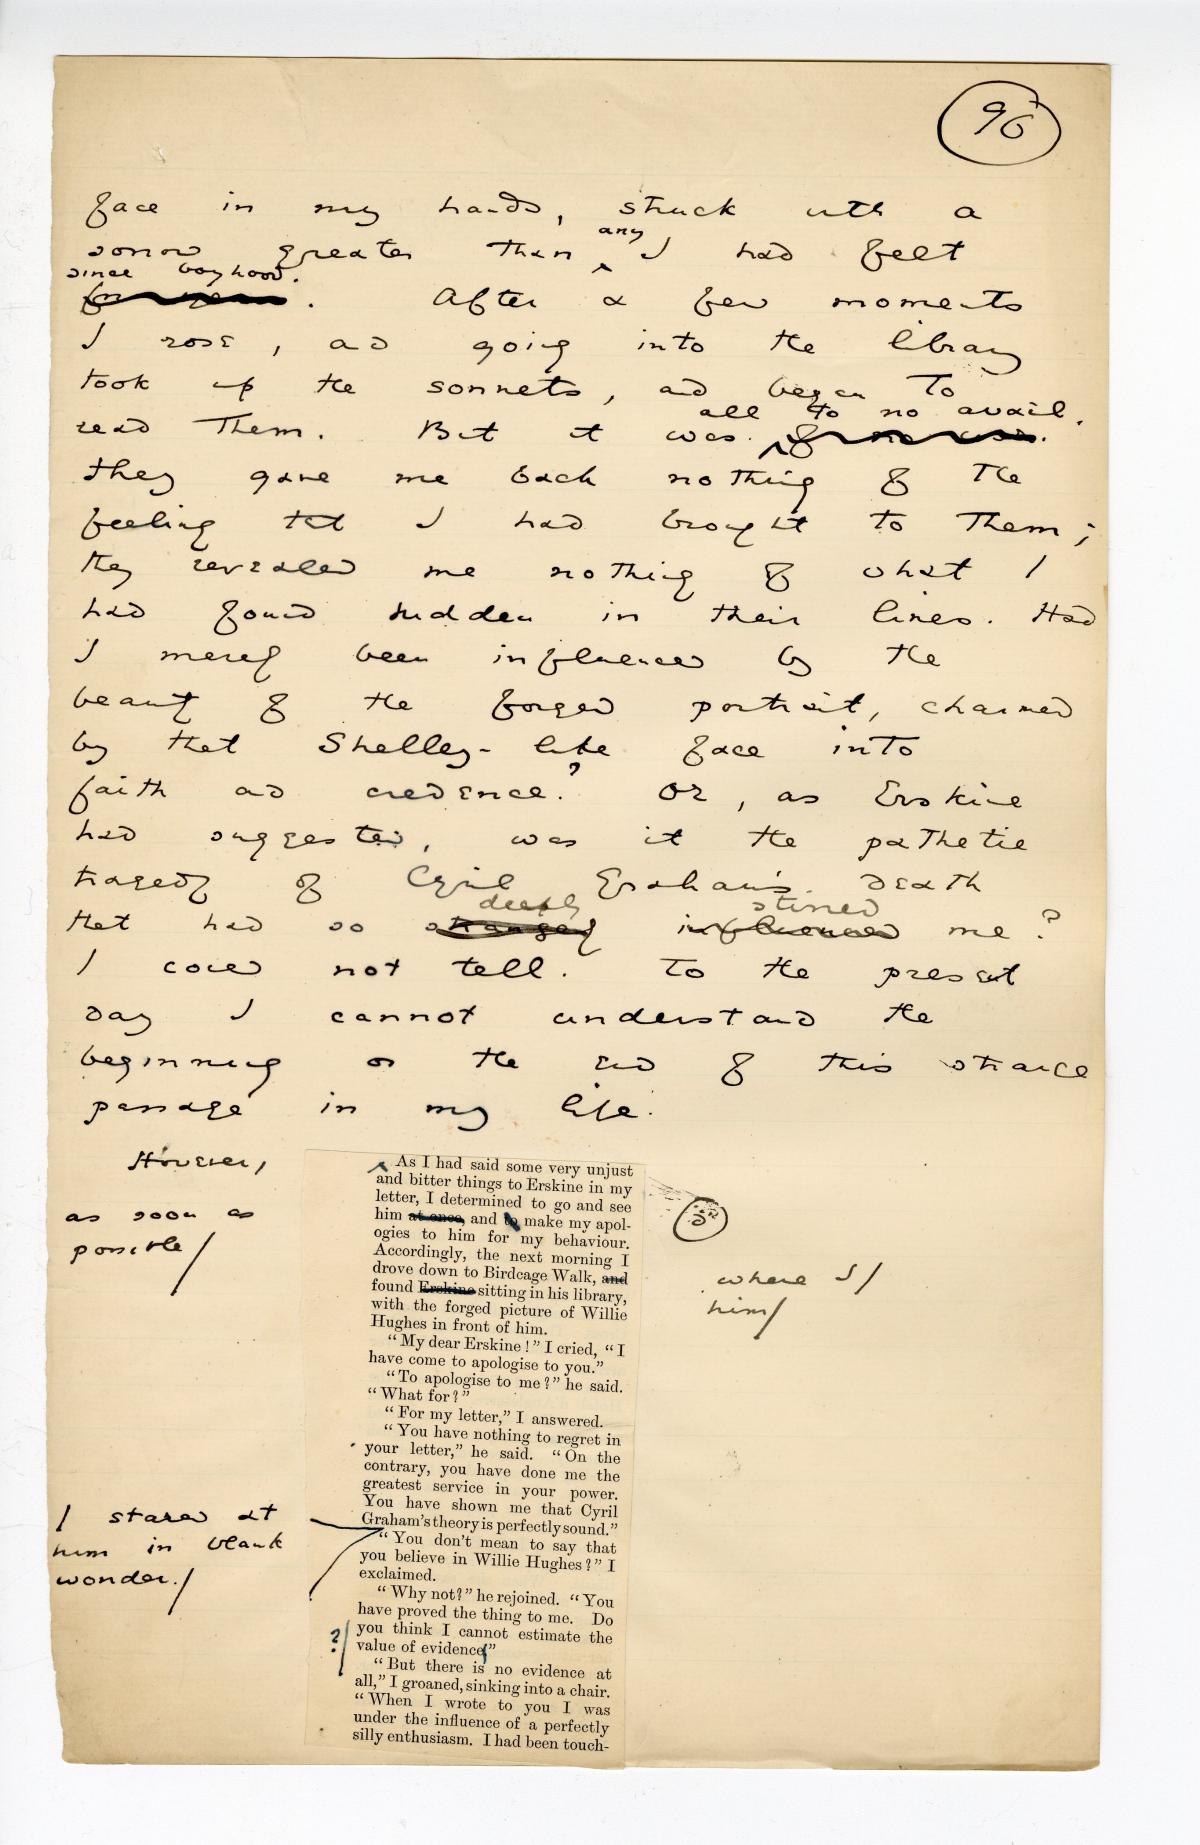 96
face in my hands, struck with a
any
sorrow greater than ‸ I had felt
since boyhood.
for years. After a few moments
I rose, and going into the library
took up the sonnets, and began to
all to no avail.
read them. But it was ‸ of no use.
They gave me back nothing of the
feeling that I had brought to them;
they revealed me nothing of what I
had found hidden in their lines. Had
I merely been influenced by the
beauty of the forged portrait, charmed
by that Shelley-like face into
faith and credence? Or, as Erskine
had suggested, was it the pathetic
tragedy of Cyril Graham's death
deeply stirred
that had so strangely influenced me?
I could not tell. To the present
day I cannot understand the
beginning or the end of this strange
passage in my life.
However,
as soon as
possible/
‸ As I had said some very unjust
and bitter things to Erskine in my
letter, I determined to go and see
him at once, and to make my apol-
ogies to him for my behaviour.
Accordingly, the next morning I
drove down to Birdcage Walk, and
found Erskine sitting in his library,
with the forged picture of Willie
Hughes in front of him.
"My dear Erskine!" I cried, "I
have come to apologise to you."
"To apologise to me?" he said.
"What for?"
"For my letter," I answered.
"You have nothing to regret in
your letter," he said. "On the
contrary, you have done me the
greatest service in your power.
You have shown me that Cyril
Graham's theory is perfectly sound."
"You don't mean to say that
you believe in Willie Hughes?" I
exclaimed.
"Why not?" he rejoined. "You
have proved the thing to me. Do
you think I cannot estimate the
value of evidence"
"But there is no evidence at
all," I groaned, sinking into a chair.
"When I wrote to you I was
under the influence of a perfectly
silly enthusiasm. I had been touch-
where I/
him/
I stared at
him in blank
wonder./
?/